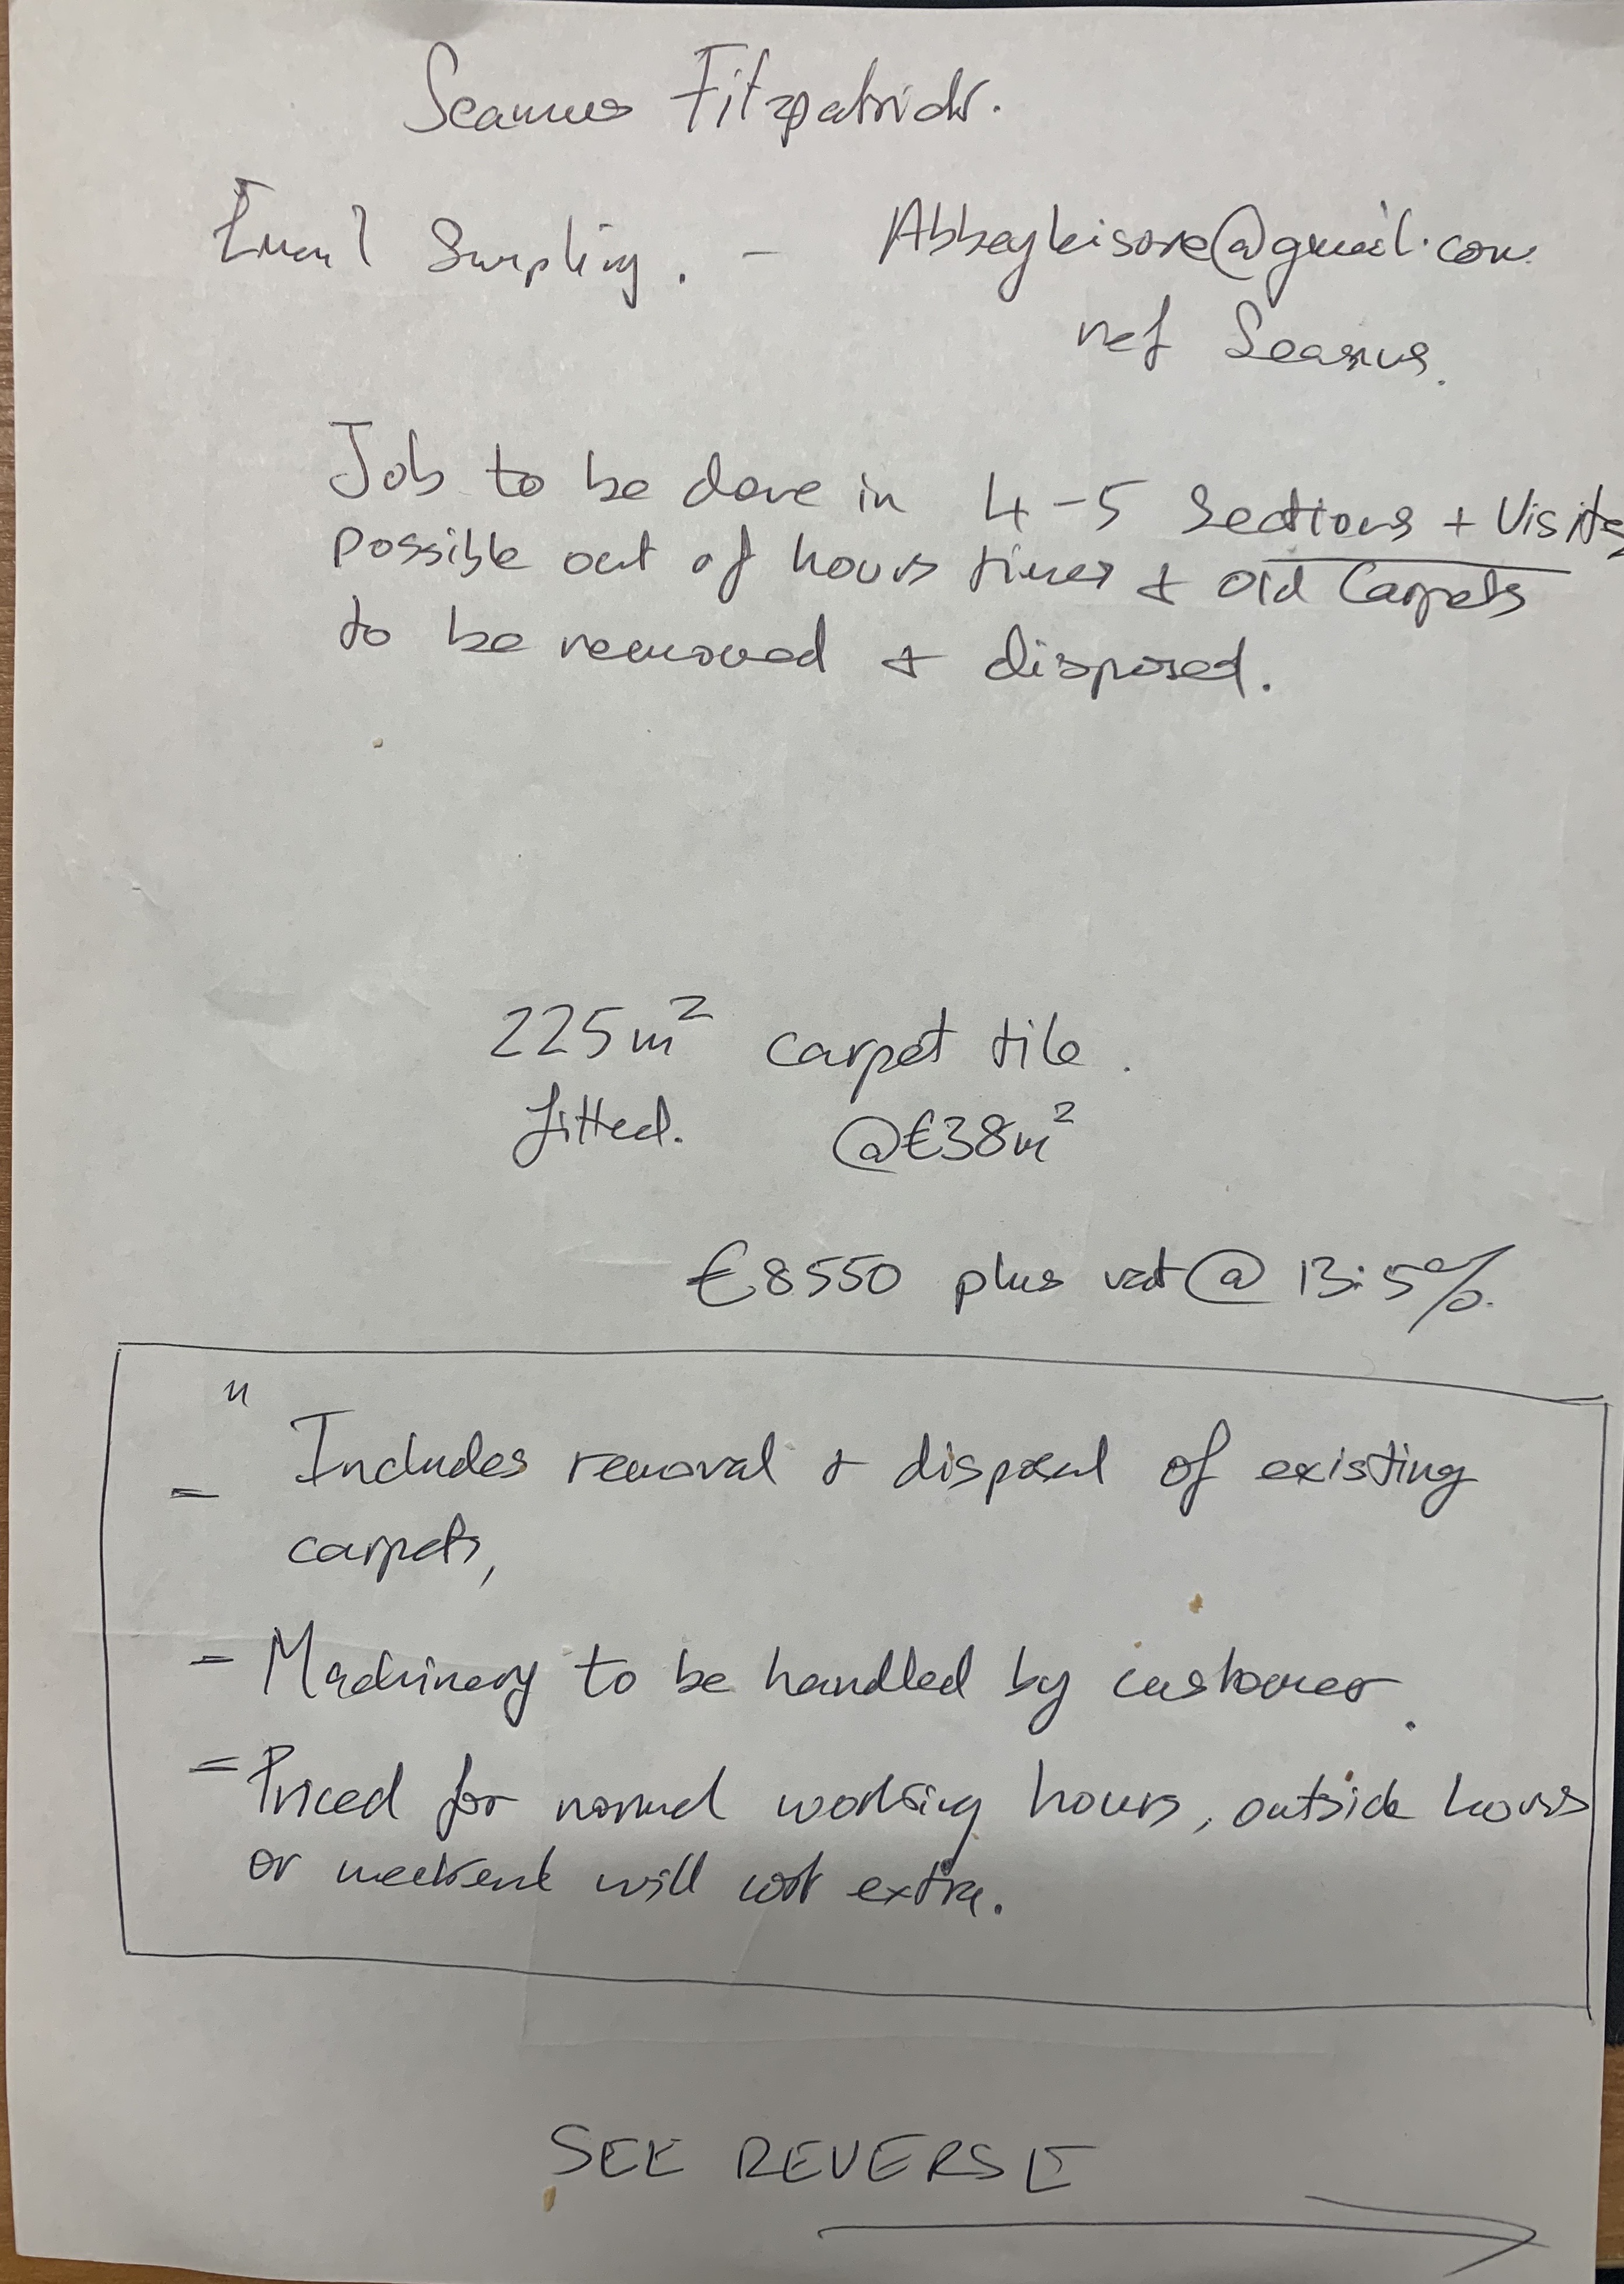 Seamus Fitzpatrick.
Email Sampling. - Abbeyleisore@gmail.com
ref Seamus.
Job to be done in 4-5 Sections + Visits
possible out of hours times + old Carpets
to be removed + disposed.
225m² carpet tile.
fitted. @€38m²
€8550 plus vat @ 13.5%.
"
- Includes removal + disposal of existing
carpets,
- Machinery to be handled by customer.
- Priced for normal working hours, outside hours
or weekend will cost extra.
SEE REVERSE